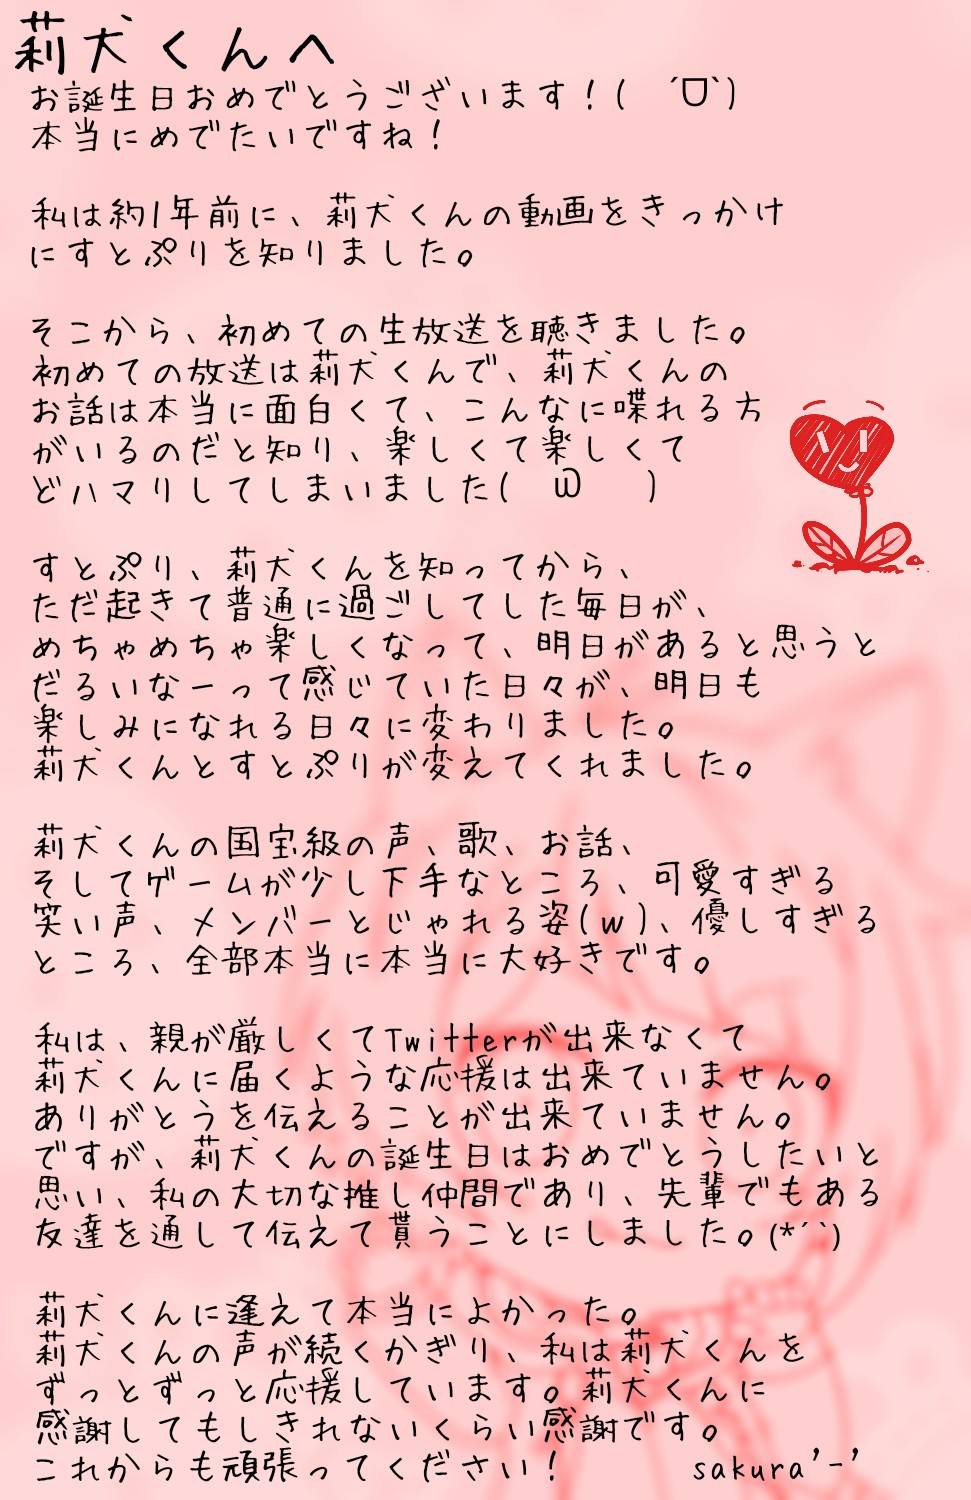 莉犬くんへ
お誕生日おめでとうございます！( ´ᗜ`)
本当にめでたいですね！
私は約1年前に、莉犬くんの動画をきっかけ
にすとぷりを知りました。
そこから、初めての生放送を聴きました。
初めての放送は莉犬くんで、莉犬くんの
お話は本当に面白くて、こんなに喋れる方
がいるのだと知り、楽しくて楽しくて
どハマりしてしまいました(　ω　)
すとぷり、莉犬くんを知ってから、
ただ起きて普通に過ごしてした毎日が、
めちゃめちゃ楽しくなって、明日があると思うと
だるいなーって感じていた日々が、明日も
楽しみになれる日々に変わりました。
莉犬くんとすとぷりが変えてくれました。
莉犬くんの国宝級の声、歌、お話、
そしてゲームが少し下手なところ、可愛すぎる
笑い声、メンバーとじゃれる姿(w)、優しすぎる
ところ、全部本当に本当に大好きです。
私は、親が厳しくてTwitterが出来なくて
莉犬くんに届くような応援は出来ていません。
ありがとうを伝えることが出来ていません。
ですが、莉犬くんの誕生日はおめでとうしたいと
思い、私の大切な推し仲間であり、先輩でもある
友達を通して伝えて貰うことにしました。(*´`)
莉犬くんに逢えて本当によかった。
莉犬くんの声が続くかぎり、私は莉犬くんを
ずっとずっと応援しています。莉犬くんに
感謝してもしきれないくらい感謝です。
これからも頑張ってください！　sakura'-'